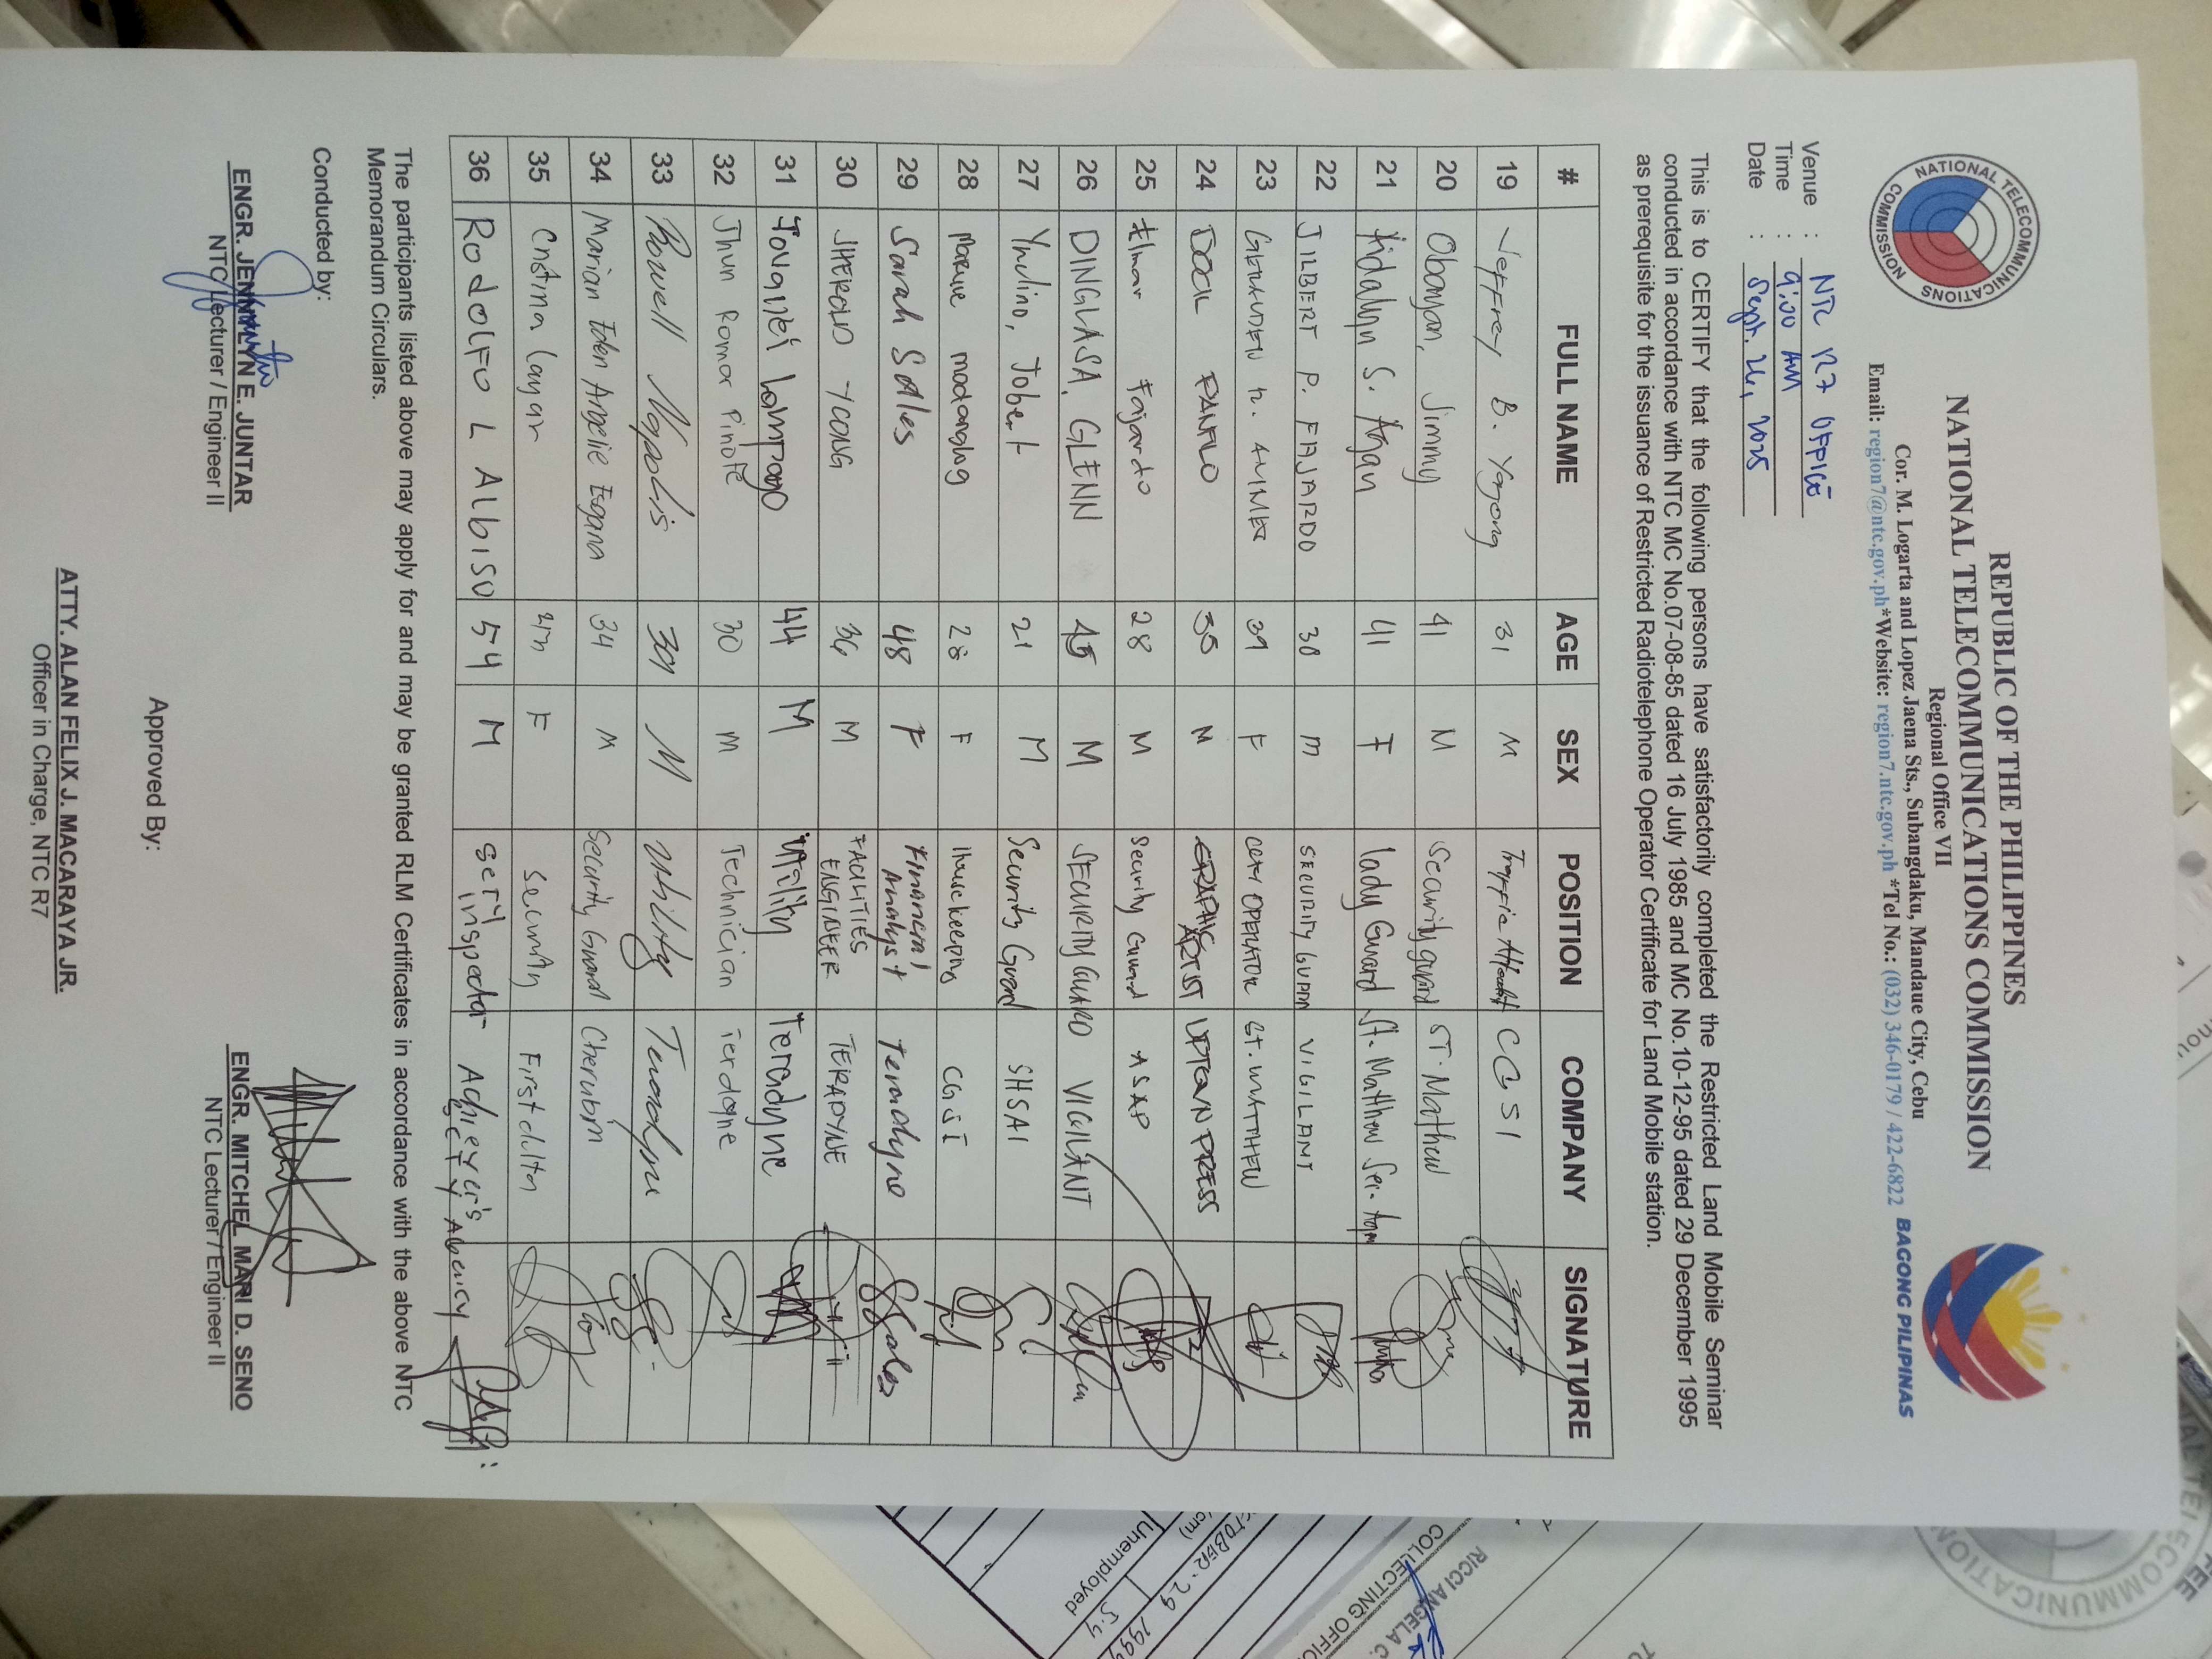 REPUBLIC OF THE PHILIPPINES
NATIONAL TELECOMMUNICATIONS COMMISSION
Regional Office VII
Cor. M. Logarta and Lopez Jaena Sts., Subangdaku, Mandaue City, Cebu
Email: region7@ntc.gov.ph*Website: region7.ntc.gov.ph *Tel No.: (032) 346-0179 / 422-6822
NATIONAL TELECOMMUNICATIONS COMMISSION
BAGONG PILIPINAS
Venue : NTC R7 OFFICE
Time : 9:00 AM
Date : Sept. 26, 2025
This is to CERTIFY that the following persons have satisfactorily completed the Restricted Land Mobile Seminar
conducted in accordance with NTC MC No.07-08-85 dated 16 July 1985 and MC No.10-12-95 dated 29 December 1995
as prerequisite for the issuance of Restricted Radiotelephone Operator Certificate for Land Mobile station.
# FULL NAME AGE SEX POSITION COMPANY SIGNATURE
19 Jeffrey B. Yagong 31 M Traffic CGSI
20 Obanyan, Jimmy 41 M Security guard ST. Mathew
21 S. 41 F lady Guard St. Matthew Ser.
22 JILBERT P. FAJARDO 30 m SECURITY VIGILANT
23 39 F CCTV OPERATOR ST. MATTHEW
24 PANFLO 35 M GRAPHIC ARTIST UPTOWN PRESS
25 Elmar Fajardo 28 M Security Guard ASAP
26 DINGLASA, GLENN 45 M SECURITY GUARD VIGILANT
27 Jobert 21 M Security Guard SHSAI
28 madanglog 28 F Housekeeping CGSI
29 Sarah Sales 48 F Financial Analyst Teradyne
30 JHEROLD YCONG 36 M FACILITIES ENGINEER TERADYNE
31 Lampago 44 M utility Teradyne
32 Jhun Romar Pinote 30 m Technician Terdayne
33 Rowell 39 M Utility Teradyne
34 Marian Eden Angelie Egana 34 M Security Guard Cherubim
35 Cristina Laygan F Security First
36 RodoLFO L AlbISO 54 M Scty inspector Achiever's Scty Agency
The participants listed above may apply for and may be granted RLM Certificates in accordance with the above NTC
Memorandum Circulars.
Conducted by:
ENGR. JENNILYN E. JUNTAR
NTC Lecturer / Engineer II
ENGR. MITCHEL MARI D. SENO
NTC Lecturer / Engineer II
Approved By:
ATTY. ALAN FELIX J. MACARAYA JR.
Officer in Charge, NTC R7
Unemployed
RICCI ANGELA C.